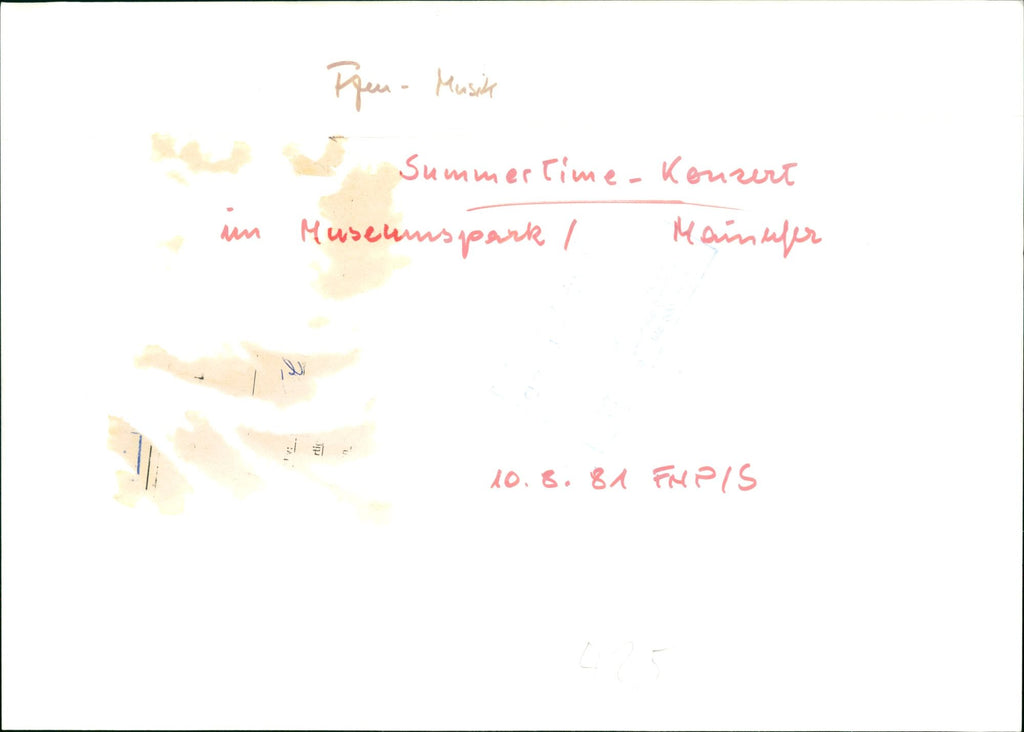 Ffm - Musik
Summertime - Konzert
im Museumspark / Mainufer
10. 8. 81 FNP/S